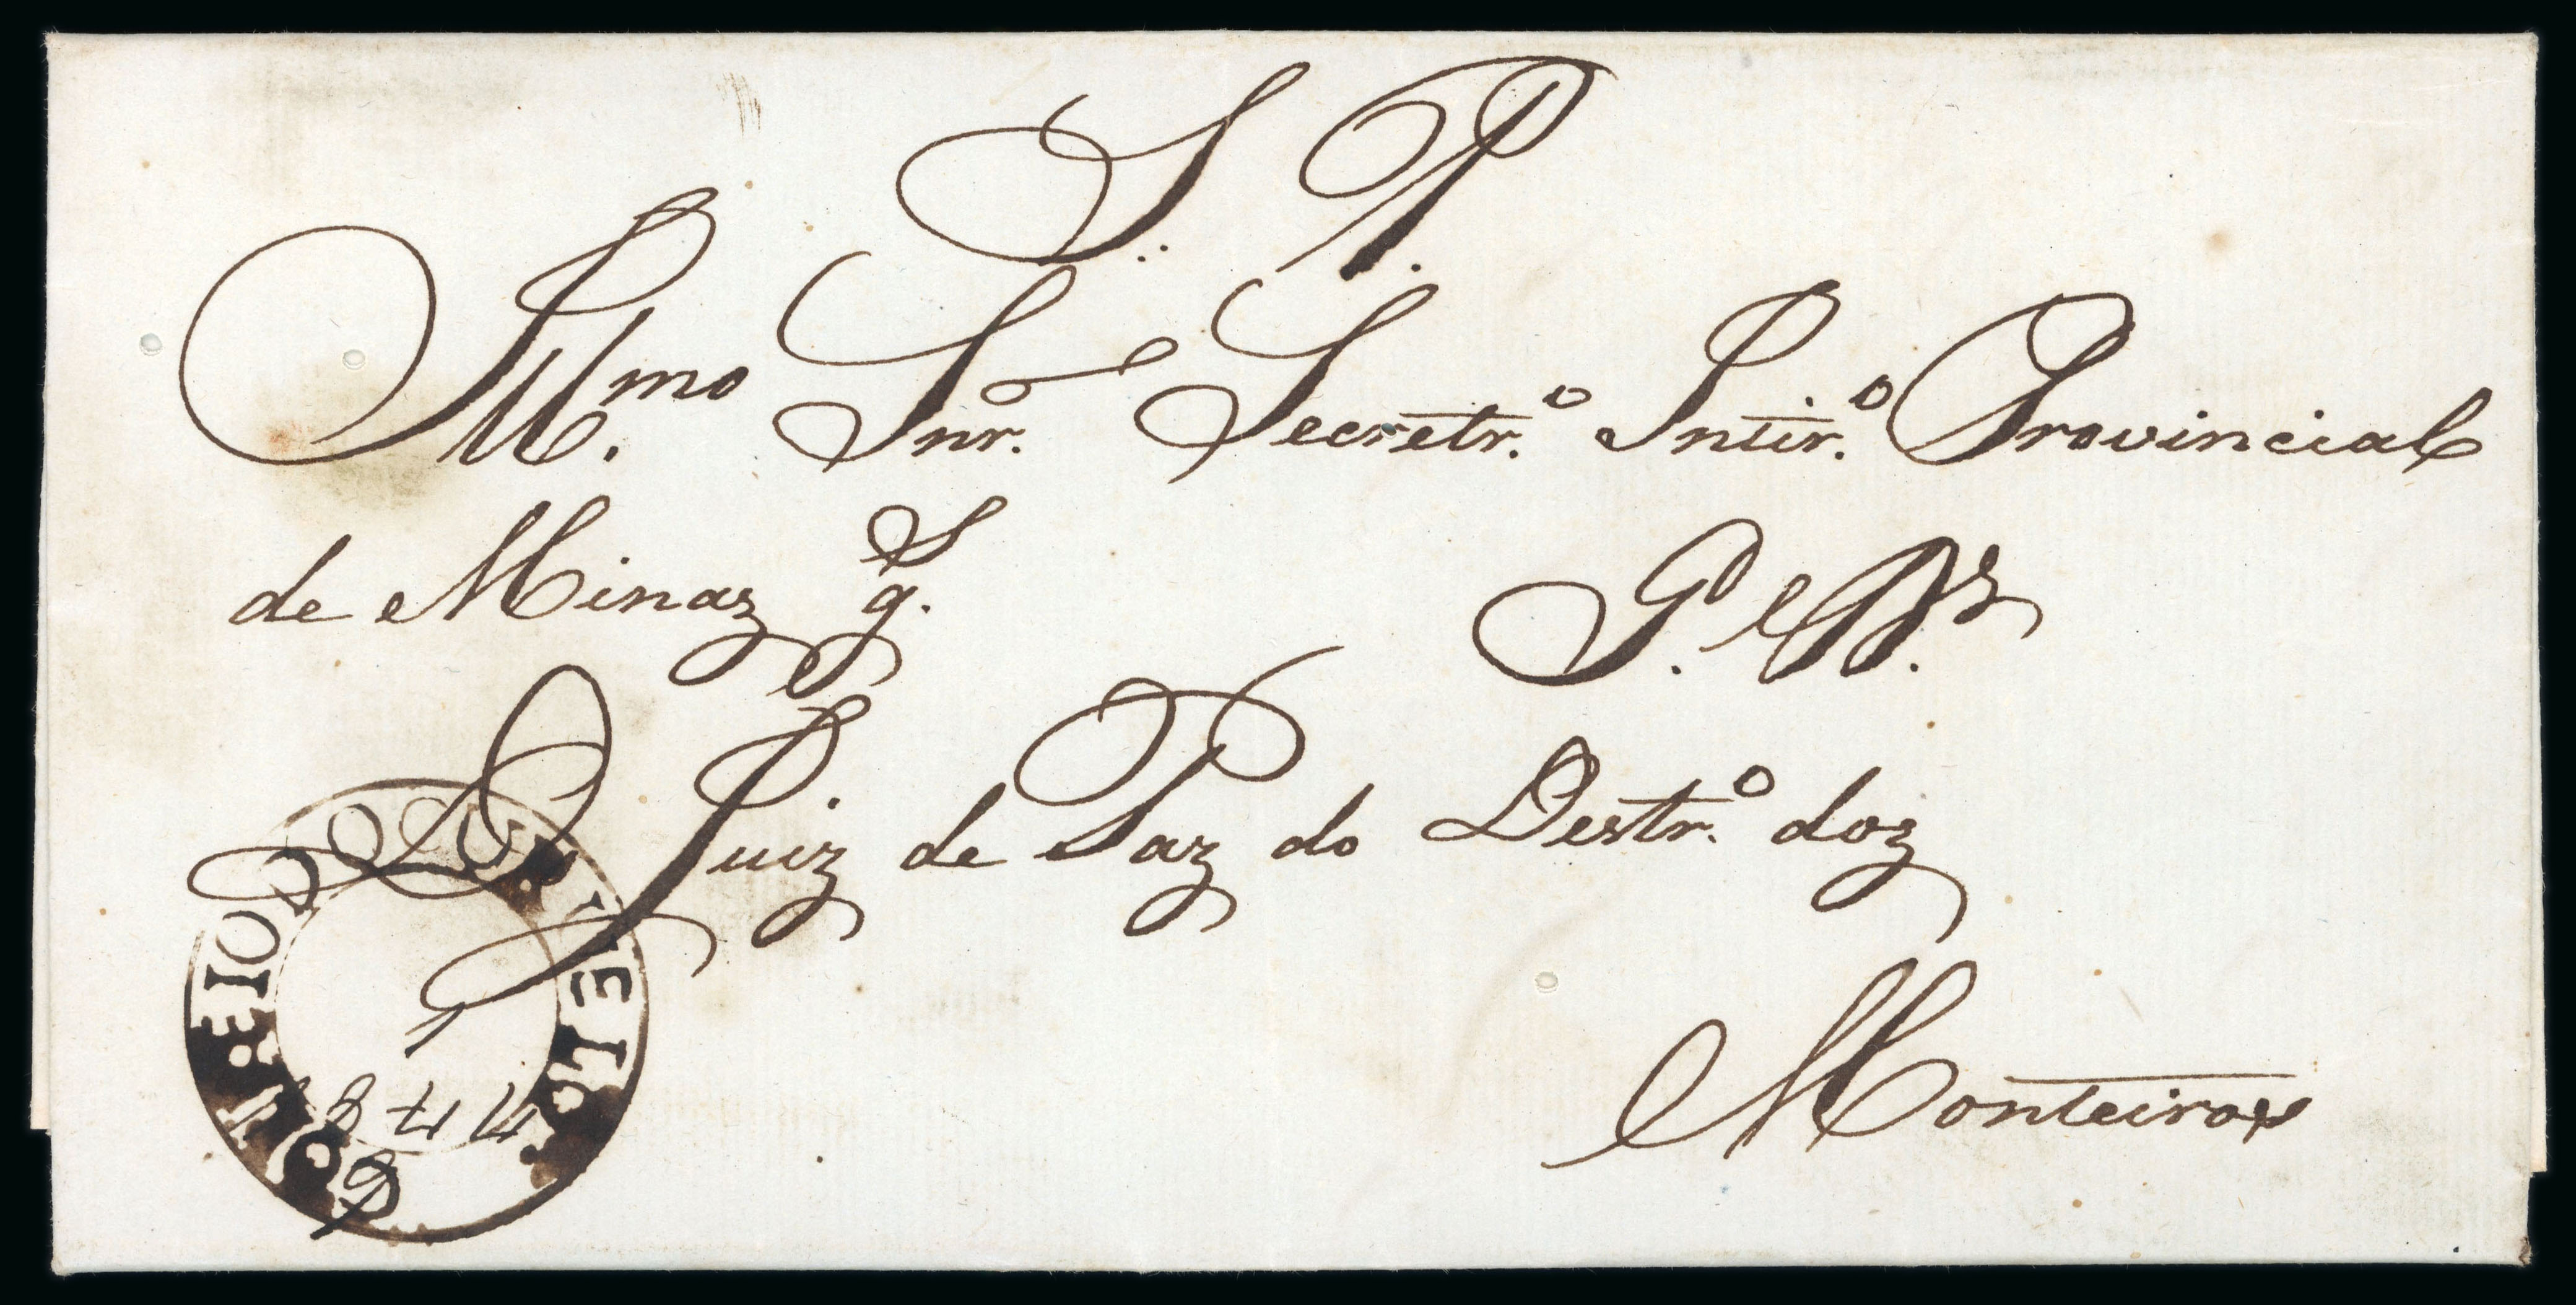 S. P.
Illmo. Snr. Secretr.º Intir.º Provincial
de Minaz Gs.
Juiz de Paz do Destr.º doz
Monteiros
CORREIO DO